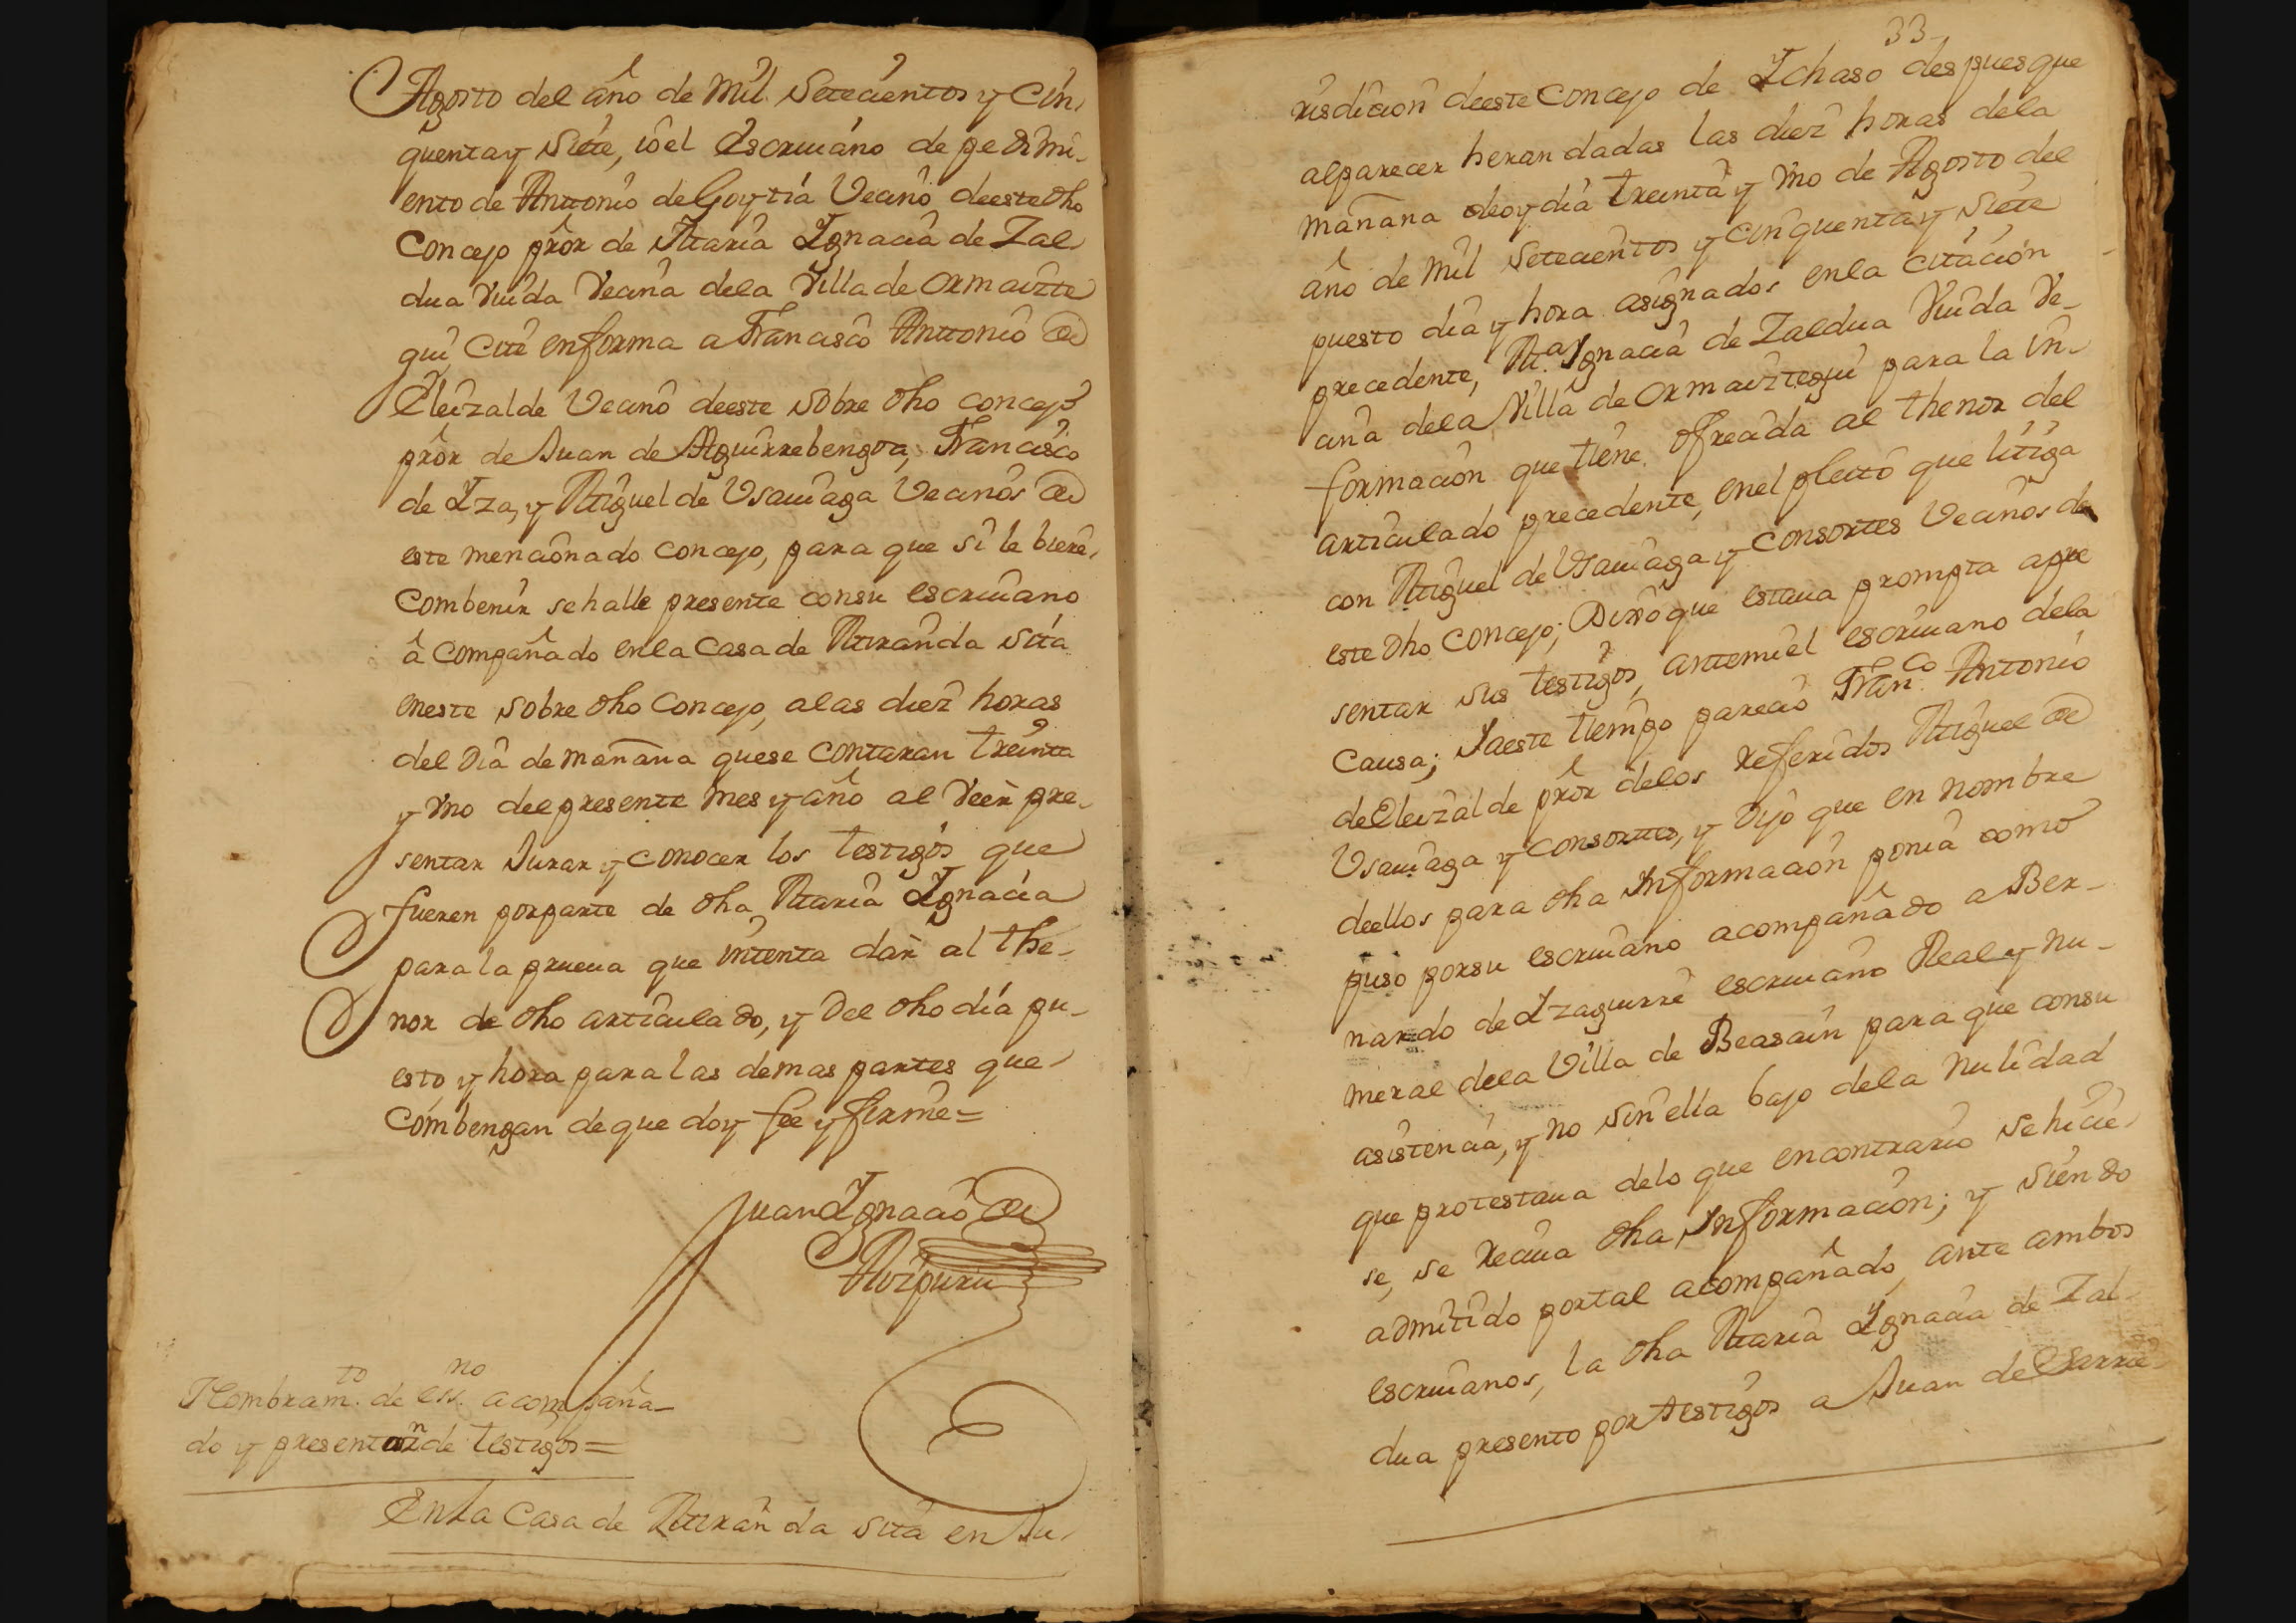 Agosto del año de Mil Setecientos y Cin
quenta y Siete, io el escriuano de pedimi-
ento de Antonio de Goytia Vecino deeste dho
Concejo pror de Maria Ignacia de Zal
dua Viuda Vecina dela Villa de Ormaizte
gui, Cité en forma a Francisco Antonio de
Eleizalde Vecino deeste sobre dho concejo
pror de Juan de Aguirrebengoa, Francisco
de Iza, y Miguel de Vsauiaga Vecinos de
este mencionado concejo, para que si le biere
Combenir se halle presente consu escriuano
acompañado enla Casa de Miranda sita
eneste sobre dho Concejo, alas diez horas
del dia de mañana quese contaran treinta
y Vno deel presente mes y año al Veer pre-
sentar Jurar y conocer los testigos que
fueren por parte de dha Maria Ignacia
para la prueua que intenta dar al the-
nor de dho articulado, y del dho dia pu-
esto y hora para las demas partes que
Combengan de que doy fee y firme=
Juan Ignacio de
Aizpuru
Nombramto. de essno. acompaña-
do y presentazn de testigos=
En la Casa de Miranda sita en Ju
33
risdicion deeste Concejo de Ichaso despues que
alparecer heran dadas las diez horas dela
mañana deoy dia treinta y Vno de Agosto del
año de Mil Setecientos y cinquenta y siete
puesto dia y hora asignados enla citacion
precedente, Ma. Ignacia de Zaldua Viuda Ve-
cina dela Villa de Ormaiztegui para la in-
formacion que tiene ofrecida al thenor del
articulado precedente, enel pleito que litiga
con Miguel de Vsauiaga y consortes Vecinos de
este dho Concejo; Dixo que estaua prompta apre
sentar sus testigos, antemi el escriuano dela
Causa; Jaeste tiempo parecio Franco. Antonio
de Eleizalde pror delos referidos Miguel de
Vsauiaga y consortes, y dijo que en nombre
deellos para dha Informacion ponia como
puso porsu escriuano acompañado a Ber-
nardo de Izaguirre escriuano Real y nu-
meral dela Villa de Beasain para que consu
asistencia, y no sin ella bajo dela nulidad
que protestaua delo que encontrario se hicie
se, se reciua dha Informacion; y siendo
admitido portal acompañado, ante ambos
escriuanos, la dha Maria Ignacia de Zal-
dua presento por testigos a Juan de